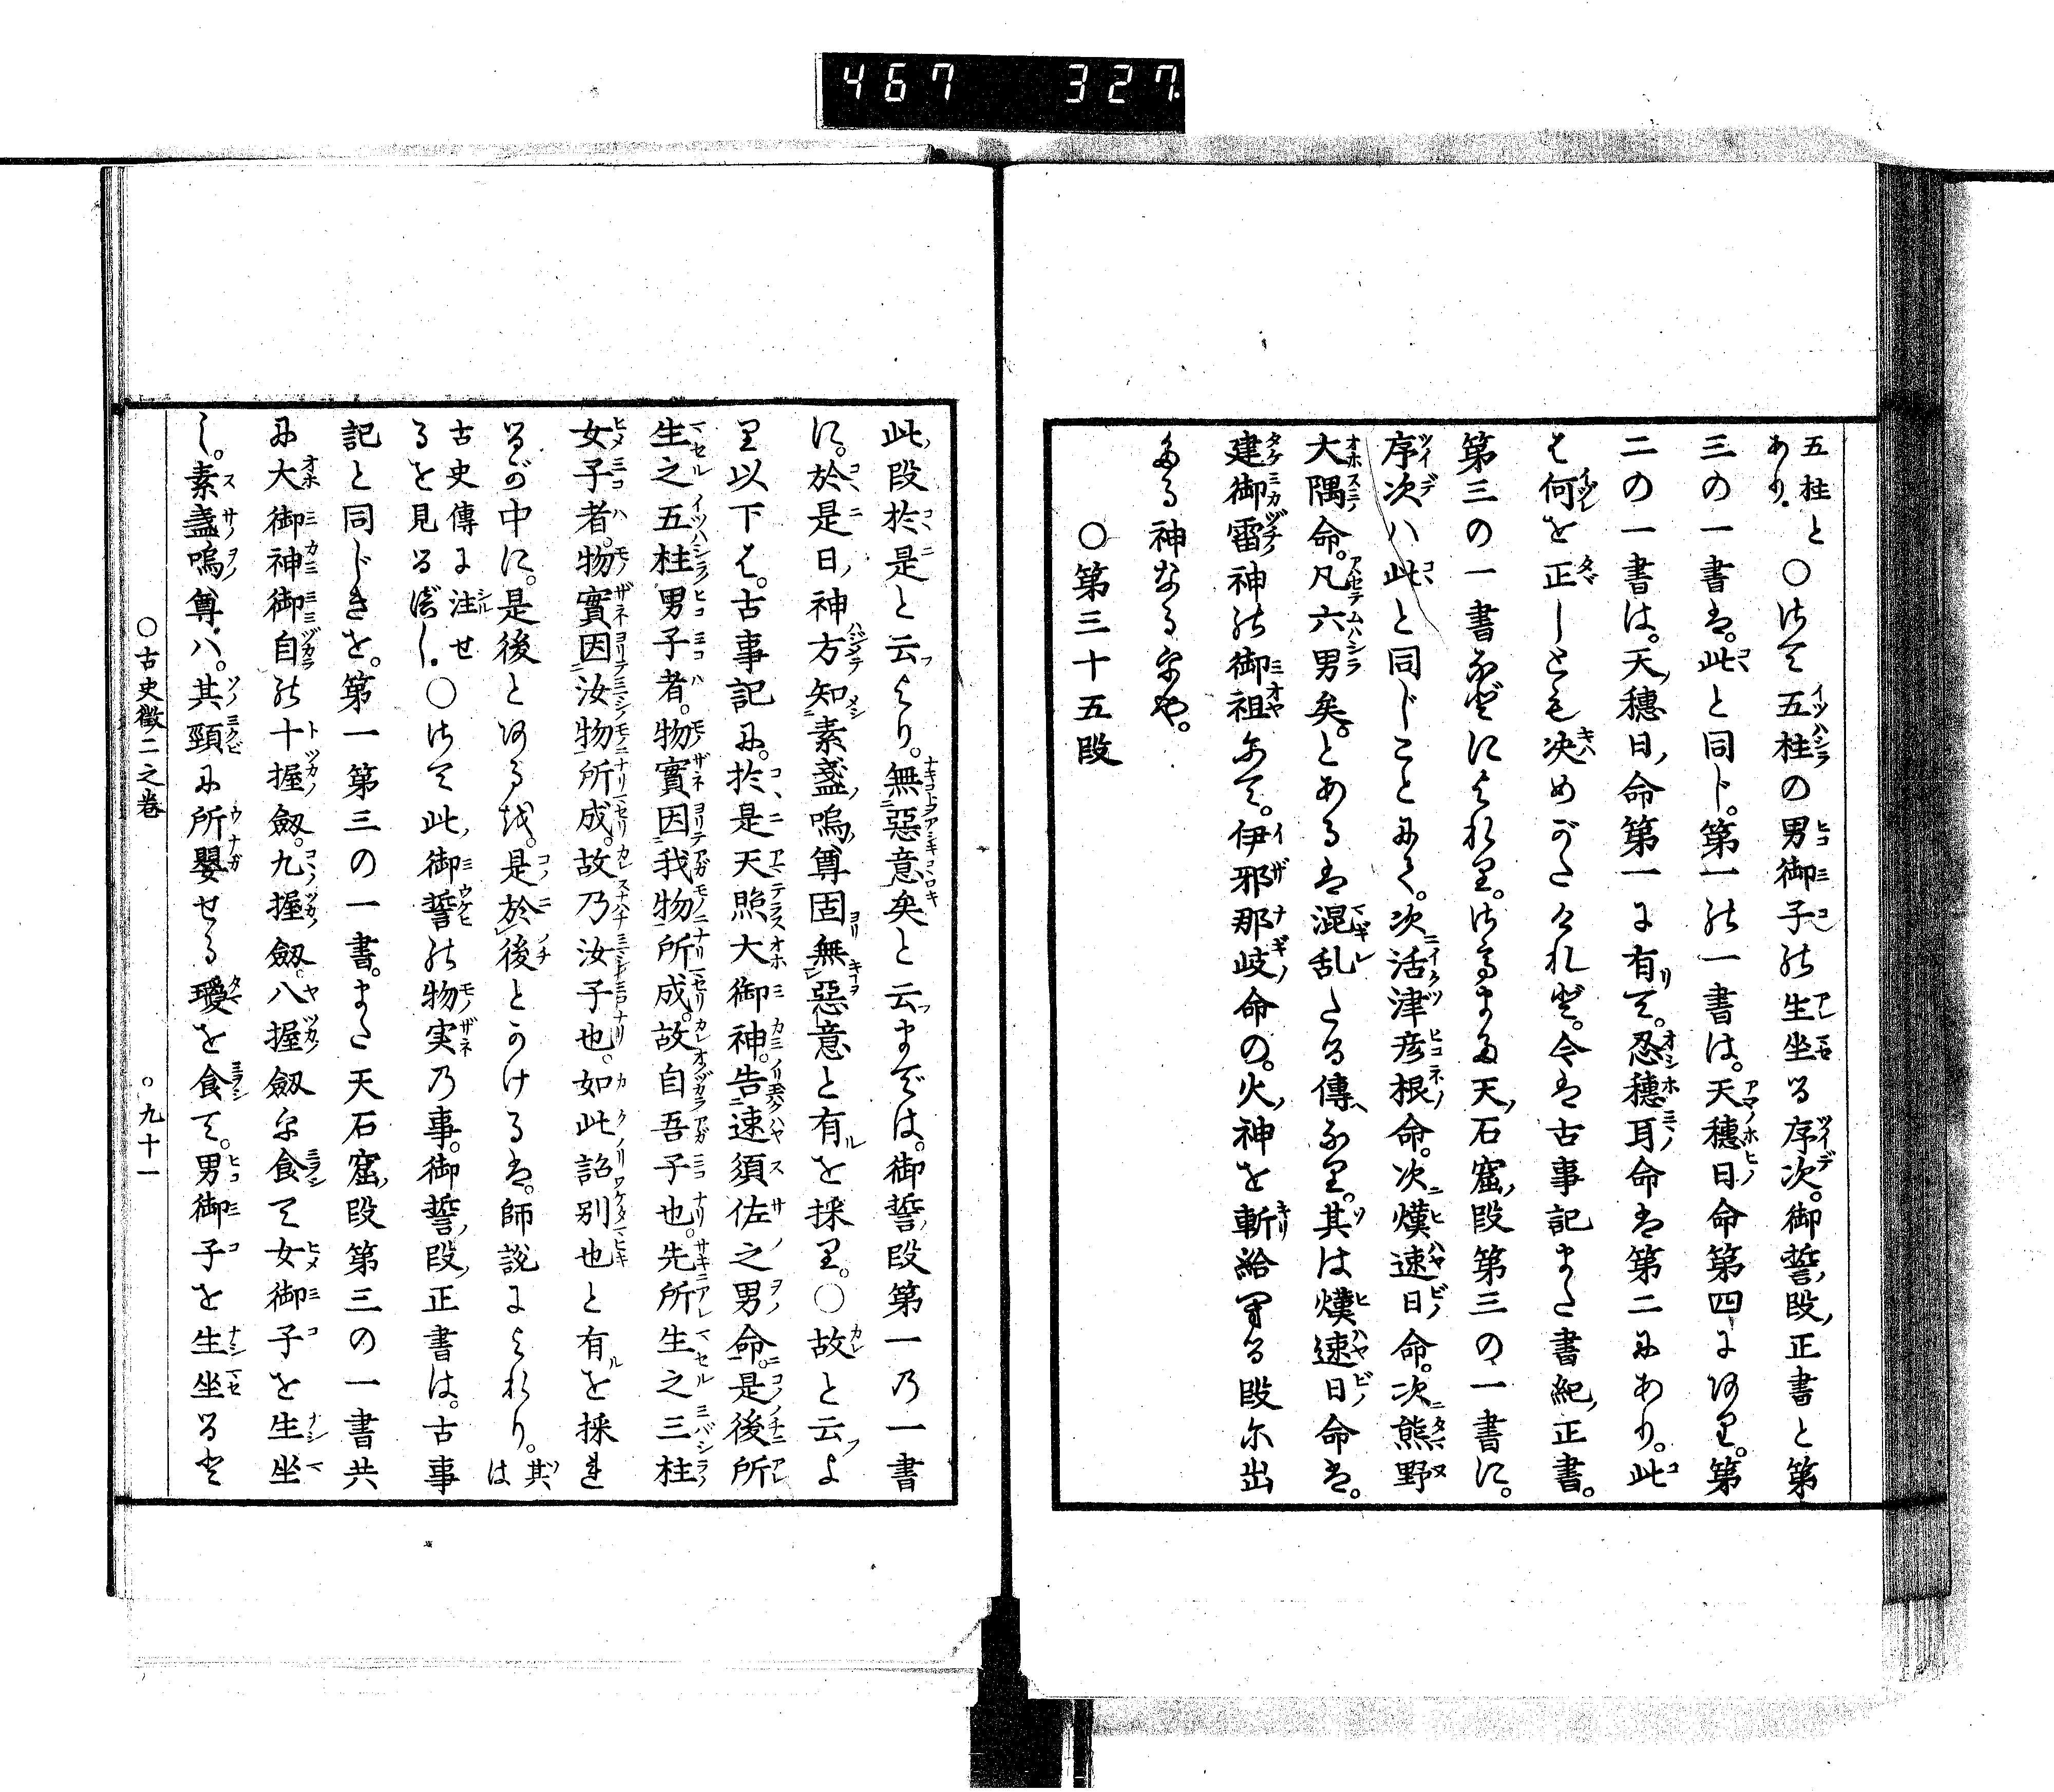 467 327
五柱と
あり。
○さて五柱の男御子の生坐る序次。御誓段正書と第
三の一書は。此と同じ。第一の一書は。天穗日命第四に何り。第
二の一書は。天穗日命第一に有て。忍穗耳命は第二にあり。此
は何を正しとも决めがたければ。今は古事記また書紀正書。
第三の一書などによれり。さるまた天石窟段第三の一書に。
序次ハ此と同じことにて。次活津彦根命。次熯速日命。次熊野
大隅命。凡六男矣。とあるは混乱たる傳なり。其は熯速日命は。
建御雷神の御祖にて。伊邪那岐命の。火神を斬給へる段に出
たる神なるをや。
○第三十五段
此段於是と云より。無惡意矣と云までは。御誓段第一乃一書
に。於是日神方知素盞嗚尊固無惡意と有を採り。○故と云よ
り以下は。古事記に。於是天照大御神。告速須佐之男命。是後所
生之五柱男子者。物實因我物所成。故自吾子也。先所生之三柱
女子者。物實因汝物所成。故乃汝子也。如此詔別也と有を採れ
るが中に。是後とある哉。是於後とかけるは。師説によれり。其は
古史傳に注せ
るを見るべし。
○さて此御誓の物実乃事。御誓段正書は。古事
記と同じきを。第一第三の一書。また天石窟段第三の一書共
に大御神御自の十握劔。九握劔。八握劔を食て女御子を生坐
し。素盞嗚尊ハ。其頸に所嬰せる瓊を食て。男御子を生坐ると
○古史徵二之卷
○九十一